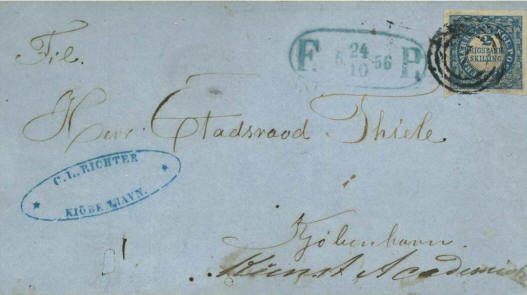 Til
F. 6. 24/10 56 P.
2
RIGSBANK
SKILLING
Herr Etadsraad Thiele
C. L. RICHTER
KIÖBENHAVN.
i
Kjöbenhavn.
Kunst Academie